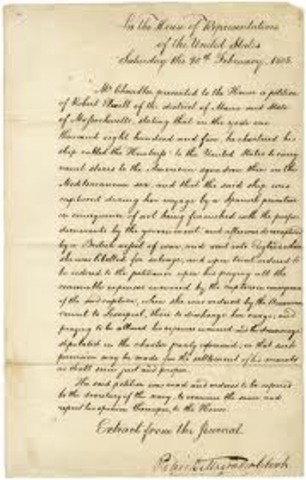 In the House of Representatives
of the United States
Saturday the 20th February, 1808.
Mr Chandler presented to the House a petition
of Robert Elwell of the district of Maine and State
of Massachusetts, stating that in the year one
thousand eight hundred and five, he chartered his
ship called the Huntress to the United States to carry
naval stores to the American squadron then in the
Mediterranean sea, and that the said ship was
captured during her voyage by a Spanish privateer
in consequence of not being furnished with the proper
documents by the government, and afterwards recaptured
by a British vessel of war, and sent into
she was libelled for salvage, and upon trial ordered to
be restored to the petitioner upon his paying all the
reasonable expenses incurred by the
of the said capture, when she was ordered by the
to discharge her cargo; and
praying to be allowed his expenses incurred and the demurrage
stipulated in the charter party aforesaid; or that such
provision may be made for the settlement of his accounts
as shall seem just and proper.
The said petition was read and ordered to be referred
to the Secretary of the navy, to examine the same and
report his opinion thereupon to the House.
Extract from the Journal.